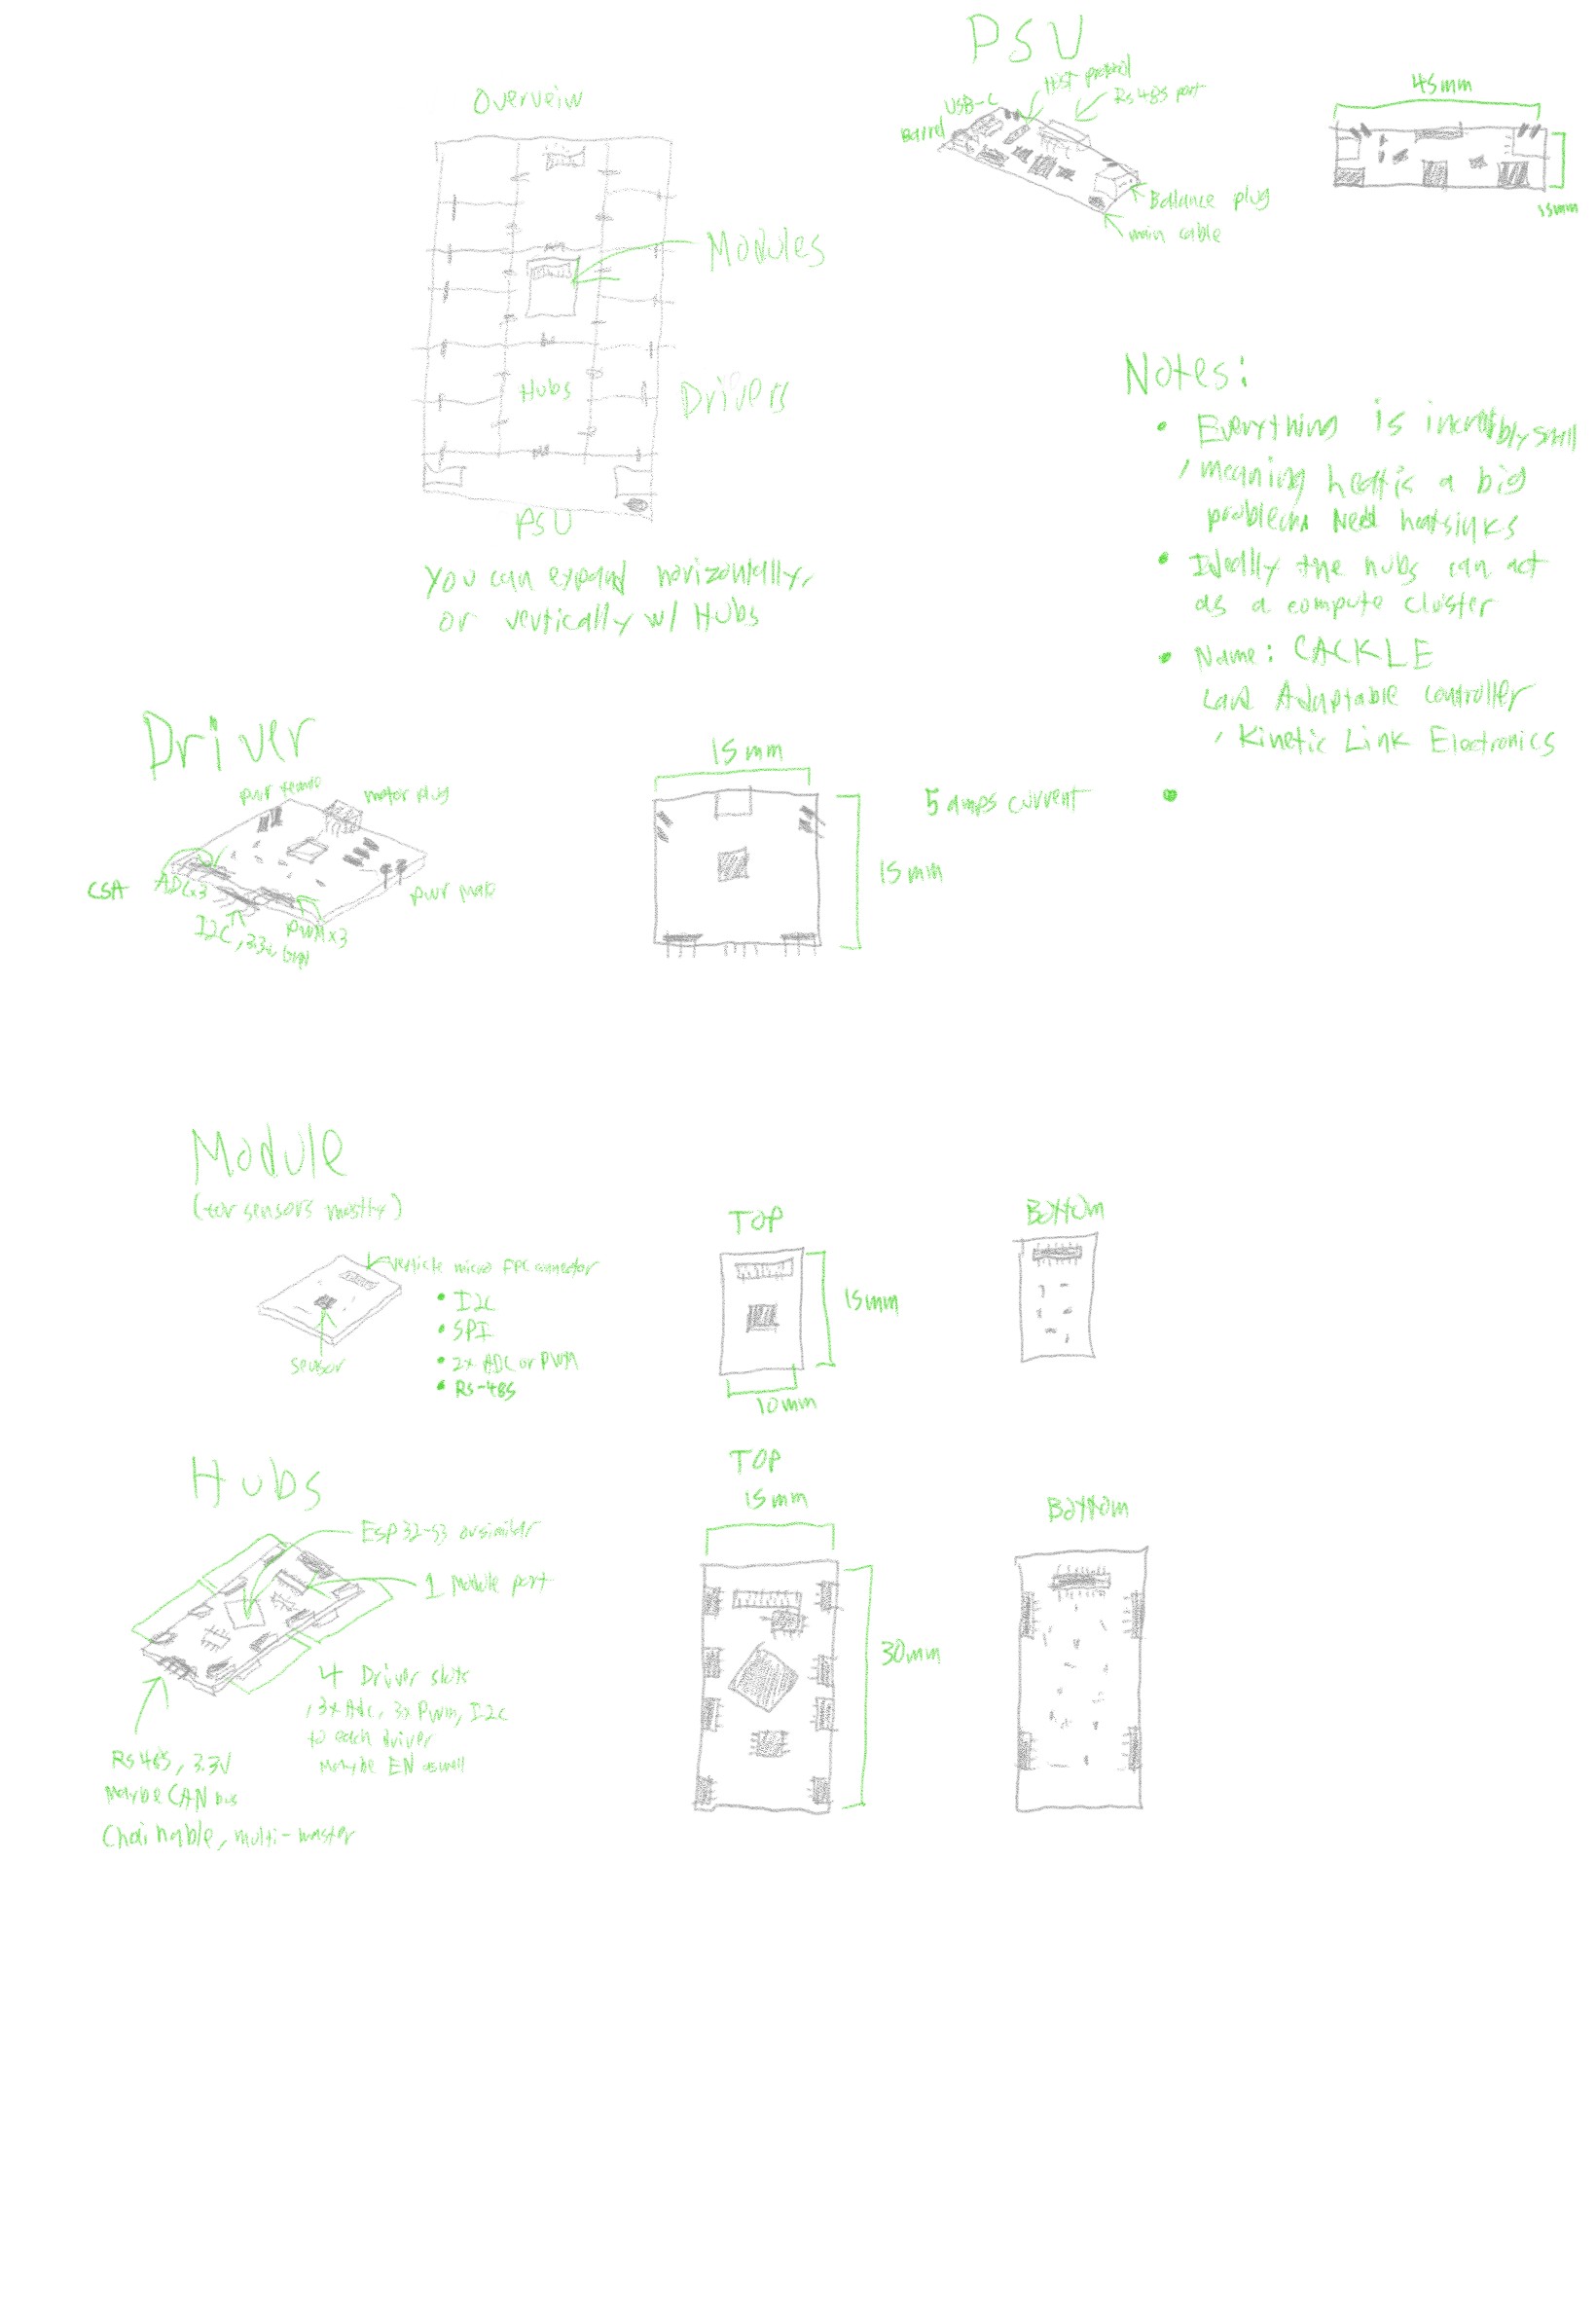 Overveiw
Modules
Hubs
Drivers
PSU
You can expand horizontally,
or vertically w/ Hubs
PSU
Host protocol
USB-C
Rs485 port
Barrel
Ballance plug
main cable
45mm
15mm
Notes:
• Everything is incredibly small
, meaning heat is a big
problem Need heatsinks
• Ideally the hubs can act
as a compute cluster
• Name: CACKLE
Adaptable Controller
, Kinetic Link Electronics
•
Driver
pwr female
motor plug
CSA
ADCx3
pwr male
I2C, 3.3v
PWMx3
15mm
5 amps current
15mm
Module
(for sensors mostly)
verticle micro FPC connector
• I2C
• SPI
• 2x ADC or PWM
• Rs-485
sensor
TOP
15mm
10mm
Bottom
Hubs
ESP32-S3 or similar
1 Module port
4 Driver slots
, 3x Adc, 3x Pwm, I2C
to each driver
Maybe EN as well
Rs485, 3.3V
Maybe CAN bus
Chainable, multi-master
TOP
15mm
30mm
Bottom